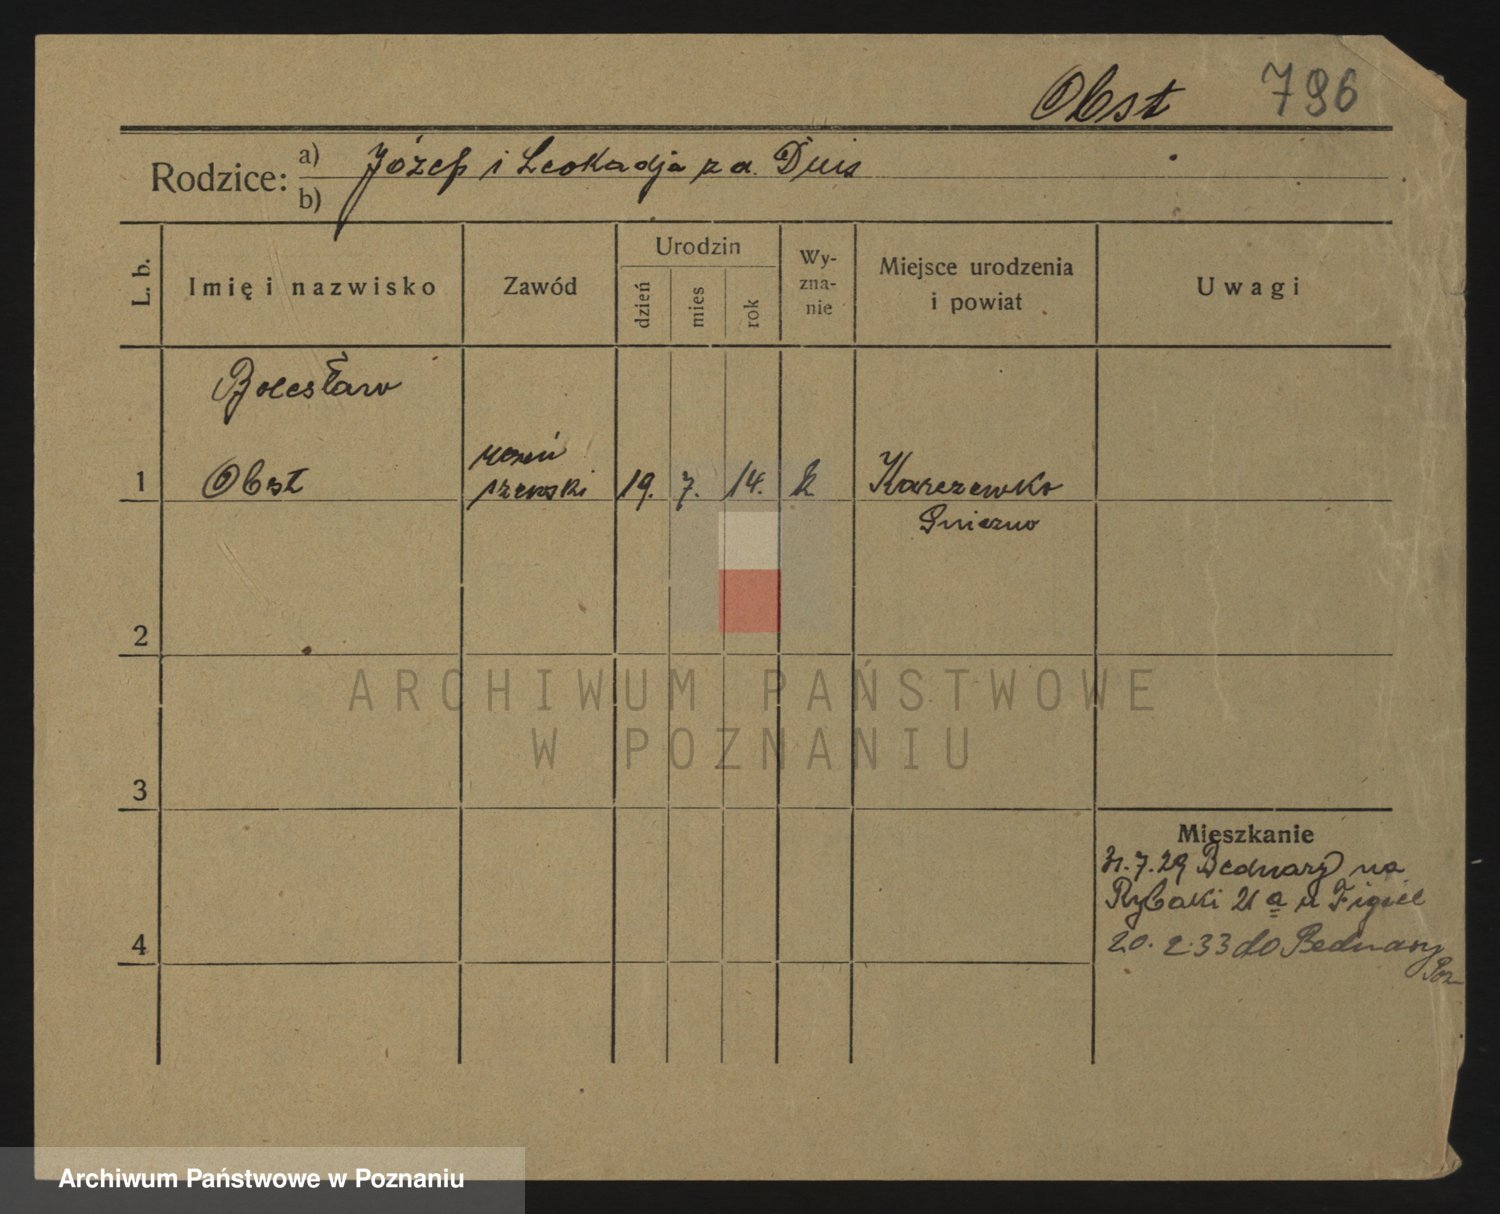 Obst 796
Rodzice:
a) Józef i Leokadja z d. Duis
b)
L. b.
Imię i nazwisko
Zawód
Urodzin
dzień
mies
rok
Wy-
zna-
nie
Miejsce urodzenia
i powiat
Uwagi
Bolesław
1 Obst
uczeń
szewski
19. 7. 14. k
Karczewko
Gniezno
2
3
4
ARCHIWUM PAŃSTWOWE
W POZNANIU
Mieszkanie
31.7.29 Bednary na
Rybaki 21 a u Figiel
20. 2.33 do Bednary
Poz
Archiwum Państwowe w Poznaniu